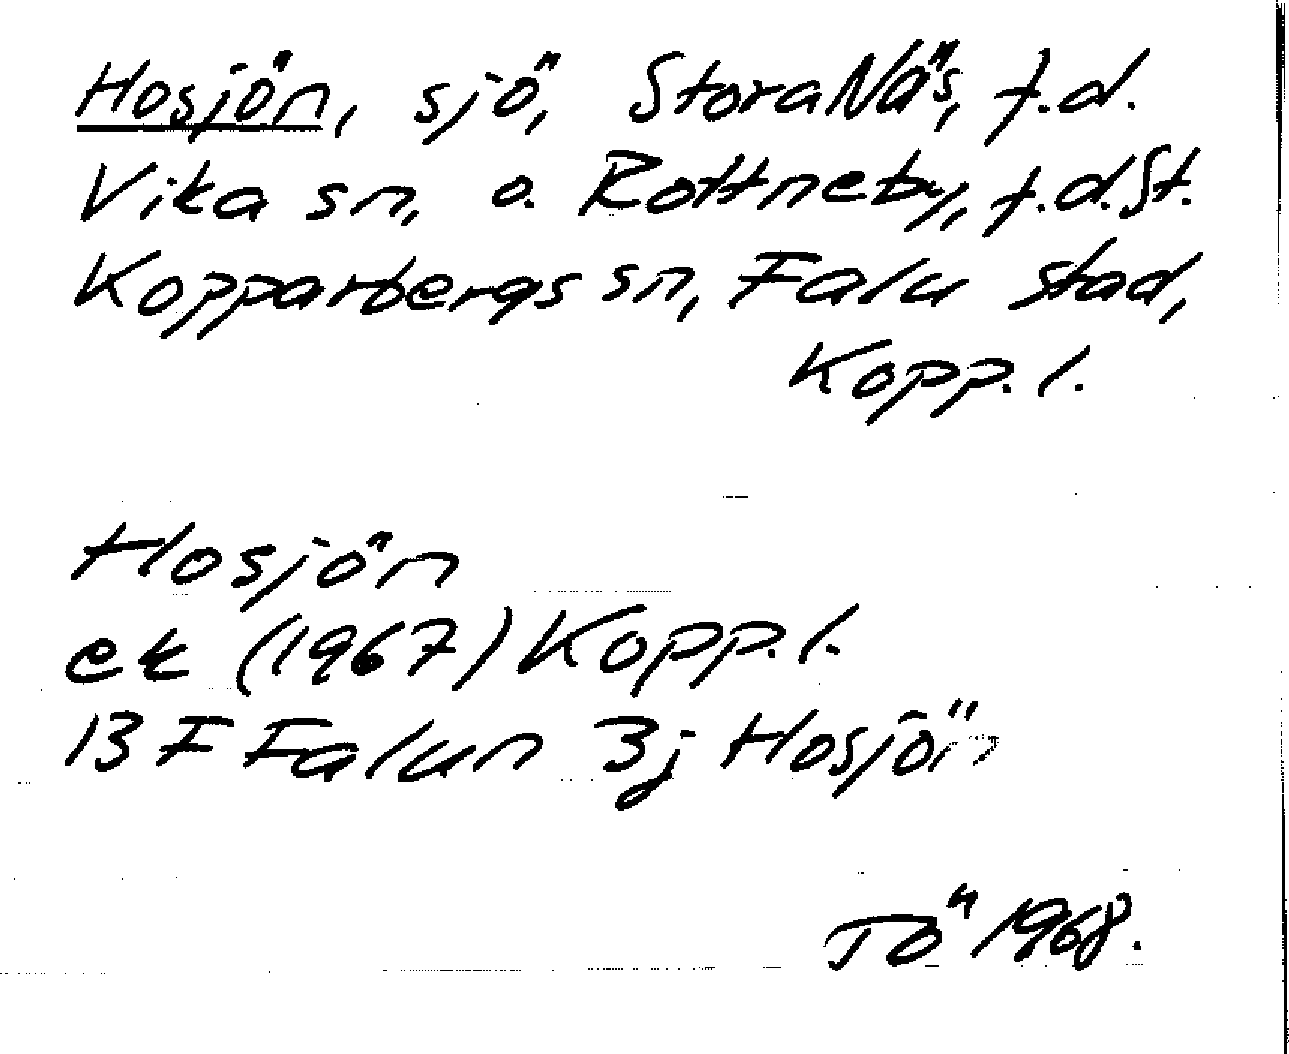 Hosjön, sjö, Stora Näs, f.d.
Vika sn, o. Rottneby, f.d. St.
Kopparbergs sn, Falu stad,
Kopp. l.
Hosjön
ek (1967) Kopp. l.
13 F Falun 3j Hosjön
TÖ 1968.